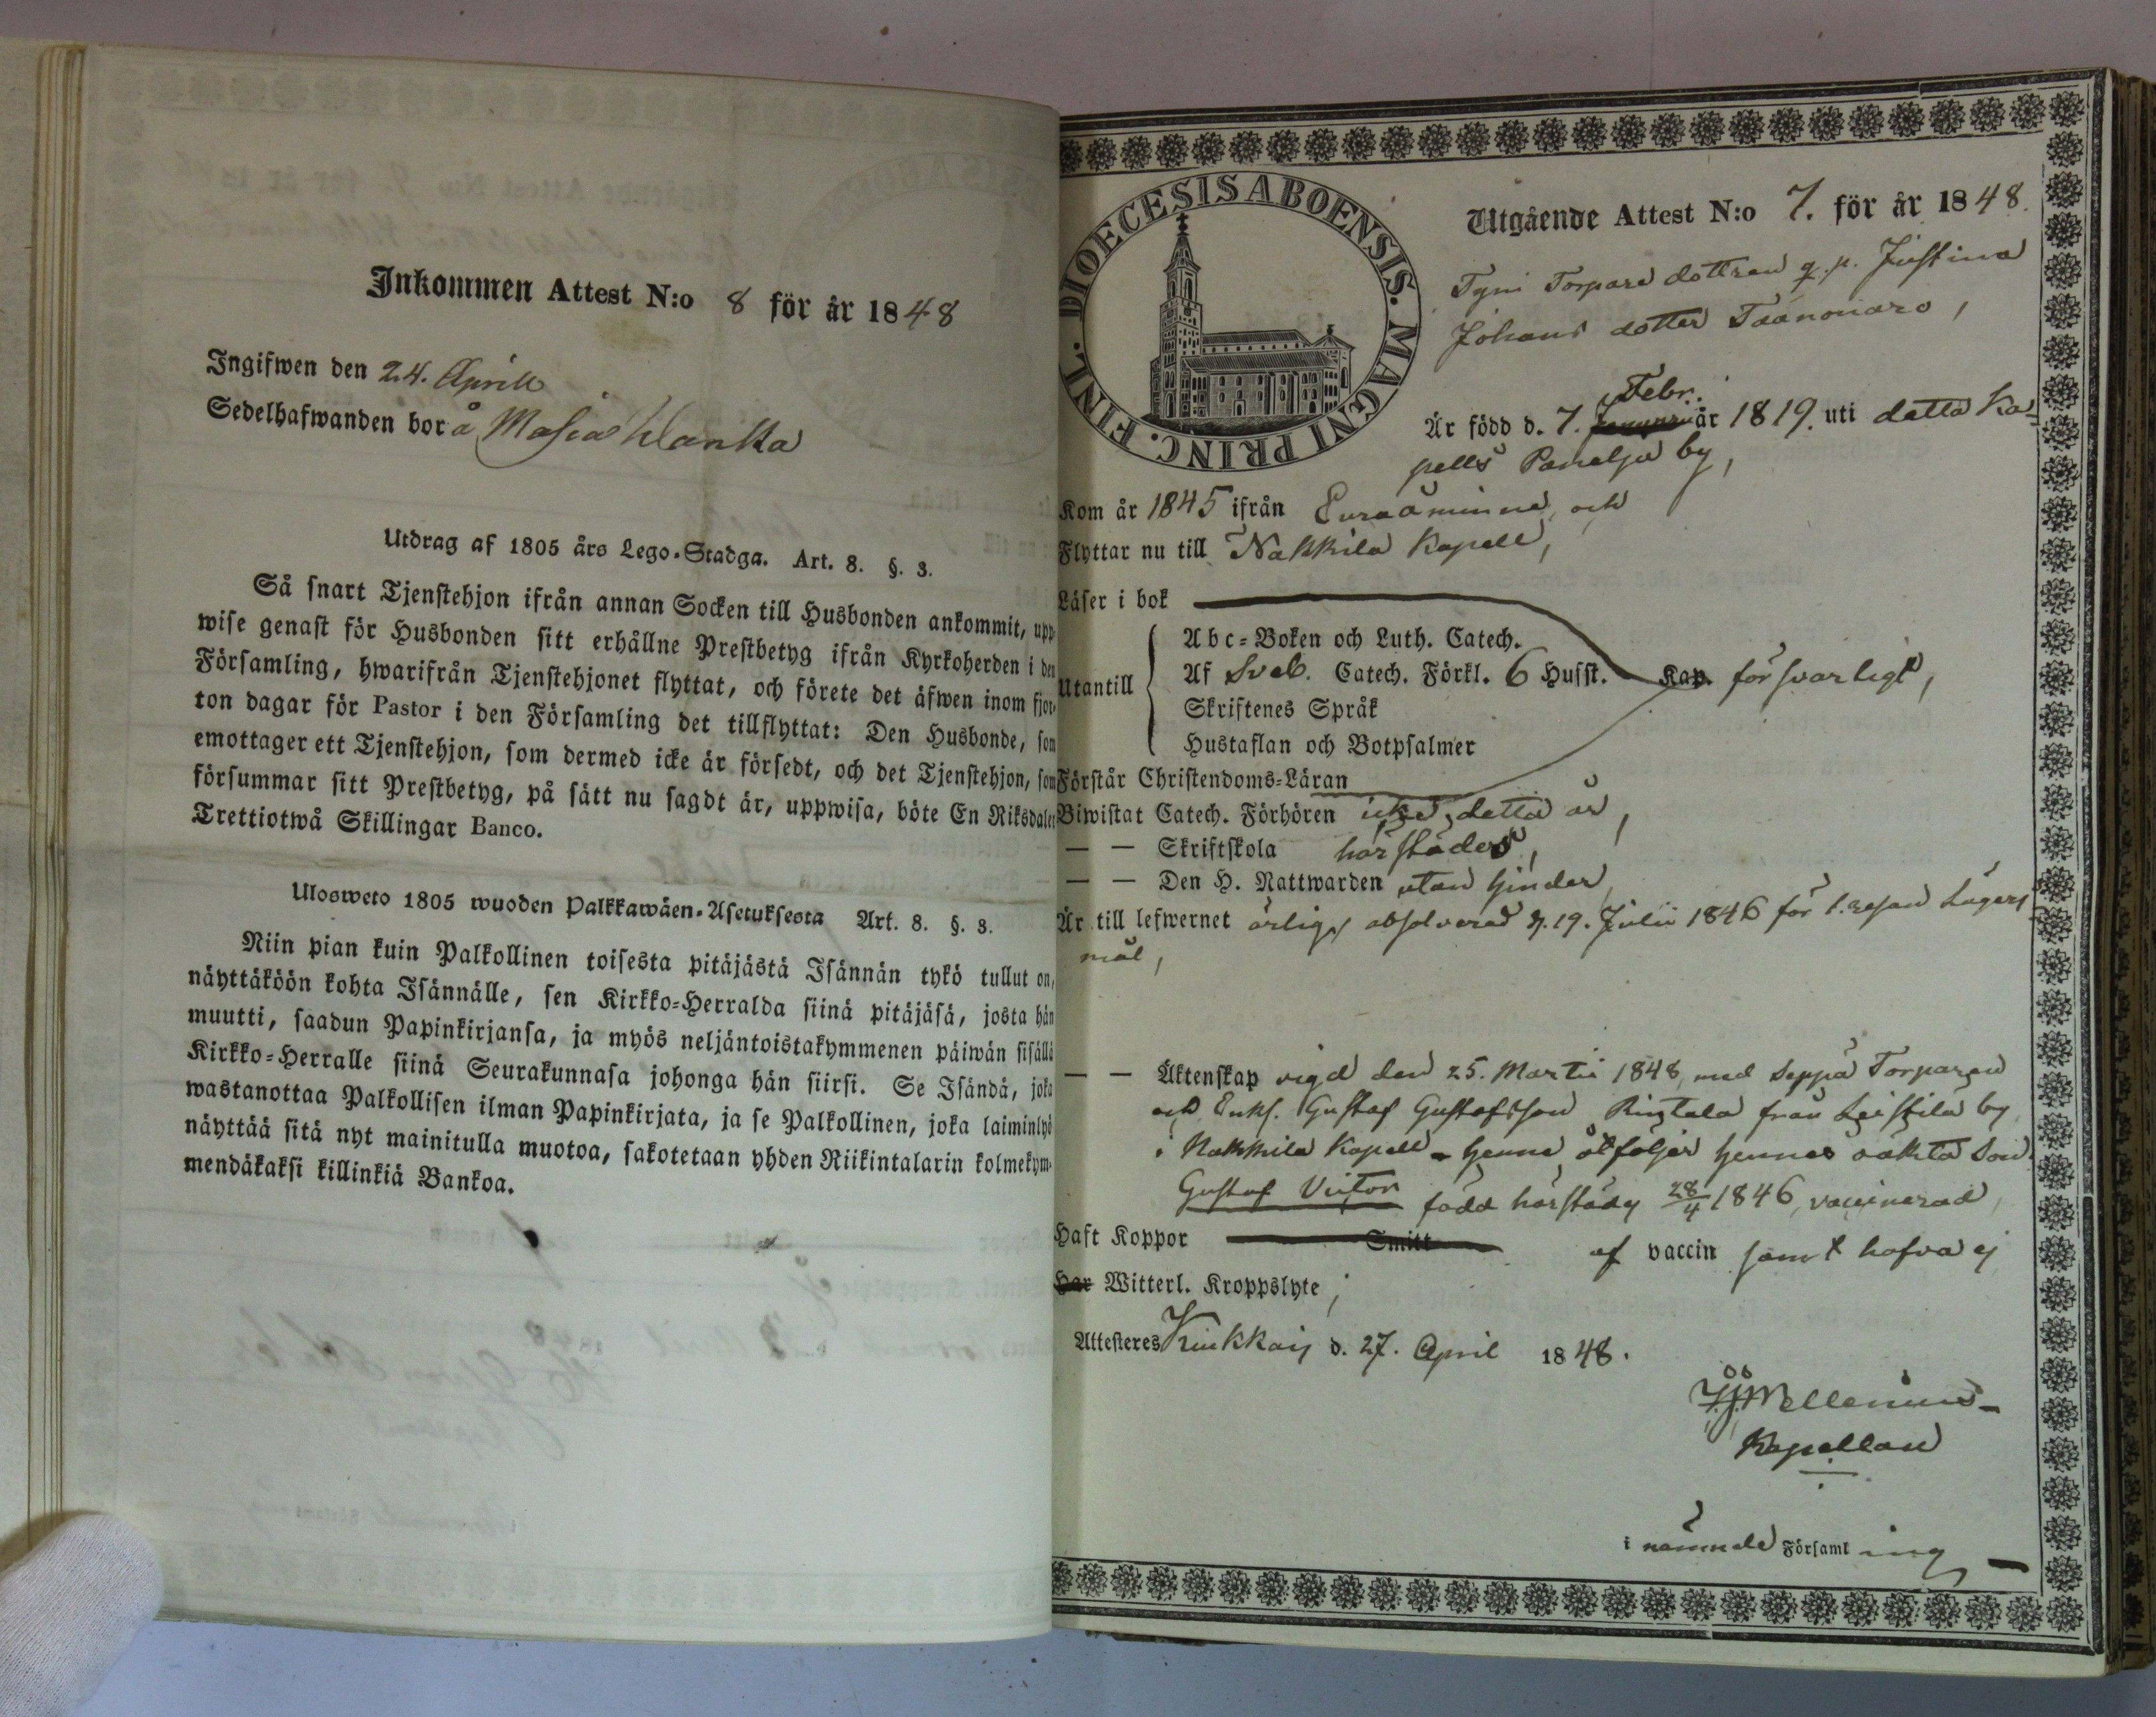 Inkommen Attest N:o 8 för år 1848
Ingifwen den 24. Aprill
Sedelhafwanden bor å Masia Wankka
Utdrag af 1805 års Lego-Stadga. Art. 8. §. 3.
Så snart Tjenstehjon ifrån annan Socken till Husbonden ankommit, upp-
wise genast för Husbonden sitt erhållne Prestbetyg ifrån Kyrkoherden i den
Församling, hwarifrån Tjenstehjonet flyttat, och förete det äfwen inom fjor-
ton dagar för Pastor i den Församling det tillflyttat: Den Husbonde, som
emottager ett Tjenstehjon, som dermed icke är försedt, och det Tjenstehjon, som
försummar sitt Prestbetyg, på sätt nu sagdt är, uppwisa, böte En Riksdaler
Trettiotwå Skillingar Banco.
Ulosweto 1805 wuoden Palkkawäen-Asetuksesta Art. 8. §. 3.
Niin pian kuin Palkollinen toisesta pitäjästä Isännän tykö tullut on,
näyttäköön kohta Isännälle, sen Kirkko-Herralda siinä pitäjäsä, josta hän
muutti, saadun Papinkirjansa, ja myös neljäntoistakymmenen päiwän sisällä
Kirkko-Herralle siinä Seurakunnasa johonga hän siirsi. Se Isändä, joka
wastanottaa Palkollisen ilman Papinkirjata, ja se Palkollinen, joka laiminlyö
näyttää sitä nyt mainitulla muotoa, sakotetaan yhden Riikintalarin kolmekym-
mendäkaksi killinkiä Bankoa.
DIOECESIS ABOENSIS. MAGNI PRINC. FINL.
Utgående Attest N:o 7. för år 1848.
Torpare dottren q. p. Justina
Johans dotter
Febr.
Är född d. 7. Januarii år 1819. uti detta Ka-
pells Paneljä by,
Kom år 1845 ifrån Euraåminne, och
Flyttar nu till Nakkila Kapell,
Läser i bok
Abc-Boken och Luth. Catech.
Utantill Af Sveb. Catech. Förkl. 6 Husst. Kap. försvarligt,
Skriftenes Språk
Hustaflan och Botpsalmer
Förstår Christendoms-Läran
Biwistat Catech. Förhören icke detta år,
— — Skriftskola härstädes,
— — Den H. Nattwarden utan hinder
Är till lefwernet ärlig, absolverad d. 19. Julii 1846 för 1. resan Lägers-
mål,
— — Äktenskap vigd den 25. Martii 1848, med Seppä Torparen
och Enkl. Gustaf Gustafsson Rintala från Leistilä by
i Nakkila Kapell - henne åtföljer hennes oäkta Son
Gustaf Victor född härstädes 28/4 1846, vaccinerad,
Haft Koppor Smitt af vaccin samt hafva ej
Har Witterl. Kroppslyte,
Attesteres Kiukkais d. 27. April 1848.
Kapellan
i nämnde Församling